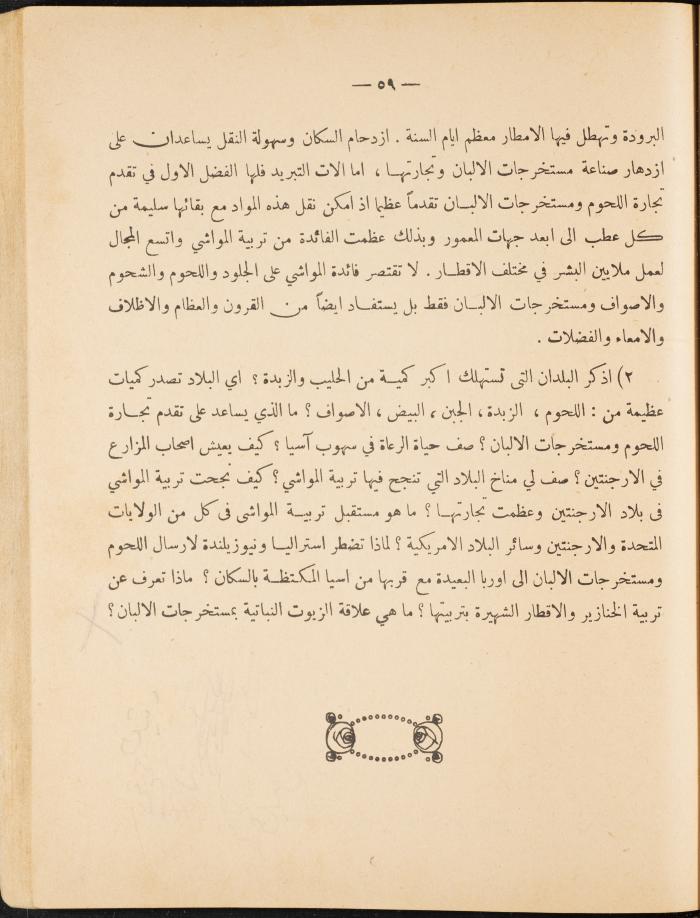 — ٥٩ —
البرودة وتهطل فيها الامطار معظم ايام السنة . ازدحام السكان وسهولة النقل يساعدان على
ازدهار صناعة مستخرجات الالبان وتجارتها ، اما الات التبريد فلها الفضل الاول في تقدم
تجارة اللحوم ومستخرجات الالبان تقدماً عظيما اذ امكن نقل هذه المواد مع بقائها سليمة من
كل عطب الى ابعد جهات المعمور وبذلك عظمت الفائدة من تربية المواشي واتسع المجال
لعمل ملايين البشر في مختلف الاقطار . لا تقتصر فائدة المواشي على الجلود واللحوم والشحوم
والاصواف ومستخرجات الالبان فقط بل يستفاد ايضاً من القرون والعظام والاظلاف
والامعاء والفضلات .
٢) اذكر البلدان التى تستهلك اكبر كمية من الحليب والزبدة ؟ اي البلاد تصدر كميات
عظيمة من : اللحوم ، الزبدة ، الجبن ، البيض ، الاصواف ؟ ما الذي يساعد على تقدم تجارة
اللحوم ومستخرجات الالبان ؟ صف حياة الرعاة في سهوب آسيا ؟ كيف يعيش اصحاب المزارع
في الارجنتين ؟ صف لي مناخ البلاد التي تنجح فيها تربية المواشي ؟ كيف نجحت تربية المواشي
فى بلاد الارجنتين وعظمت تجارتها ؟ ما هو مستقبل تربية المواشى فى كل من الولايات
المتحدة والارجنتين وسائر البلاد الامريكية ؟ لماذا تضطر استراليا ونيوزيلندة لارسال اللحوم
ومستخرجات الالبان الى اوربا البعيدة مع قربها من اسيا المكتظة بالسكان ؟ ماذا تعرف عن
تربية الخنازير والاقطار الشهيرة بتربيتها ؟ ما هي علاقة الزيوت النباتية بمستخرجات الالبان ؟